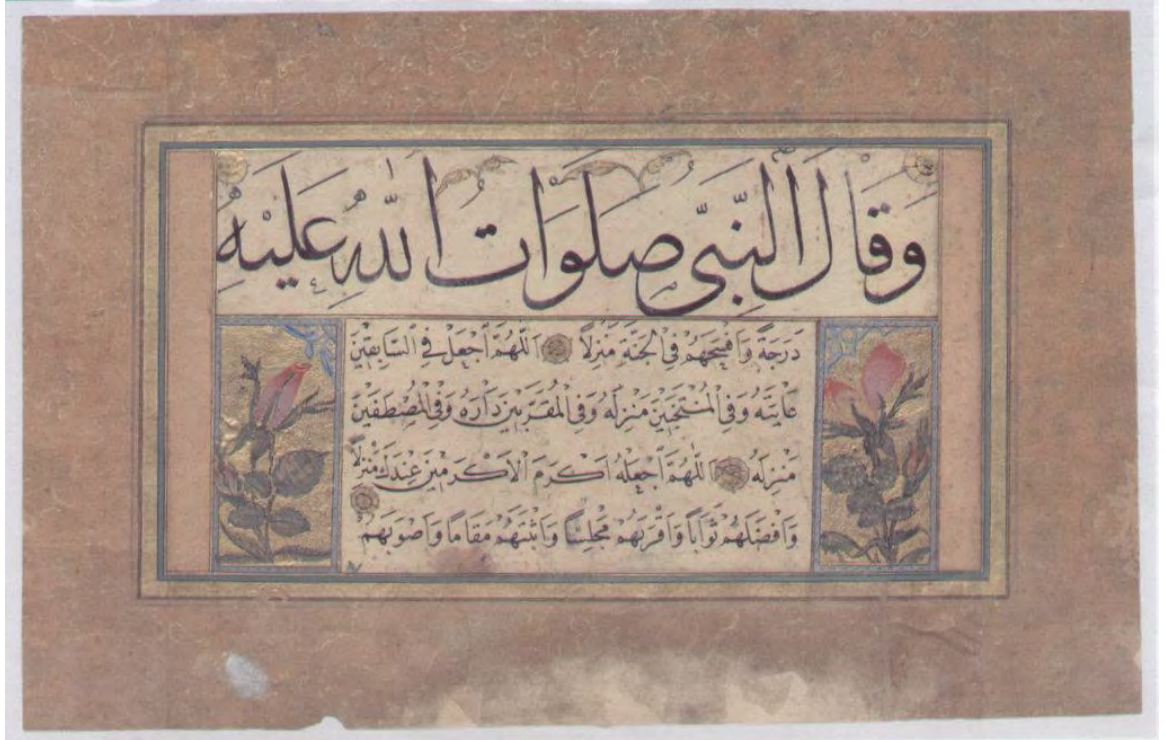 وَقَالَ النَّبِيّ صَلَوَاتُ اللهِ عَلَيْهِ
دَرَجَةً وَاَفْسَحَهُمْ فِي الْجَنَّةِ مَنْزِلاً اَللّٰهُمَّ اجْعَلْ فِي السَّابِقِيْنَ
غَايَتَهُ وَفِي الْمُنْتَجَبِيْنَ مَنْزِلَهُ وَفِي الْمُقَرَّبِيْنَ دَارَهُ وَفِي الْمُصْطَفَيْنَ
مَنْزِلَهُ اَللّٰهُمَّ اجْعَلْهُ اَكْرَمَ الْاَكْرَمِيْنَ عِنْدَكَ مَنْزِلاً
وَاَفْضَلَهُمْ ثَوَابًا وَاَقْرَبَهُمْ مَجْلِسًا وَاَثْبَتَهُمْ مَقَامًا وَاَصْوَبَهُمْ